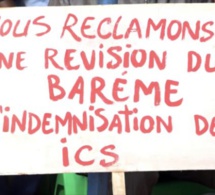 OUS RECLAMONS
NE REVISION DU
BARÉME
'INDEMNISATION DE
iCS